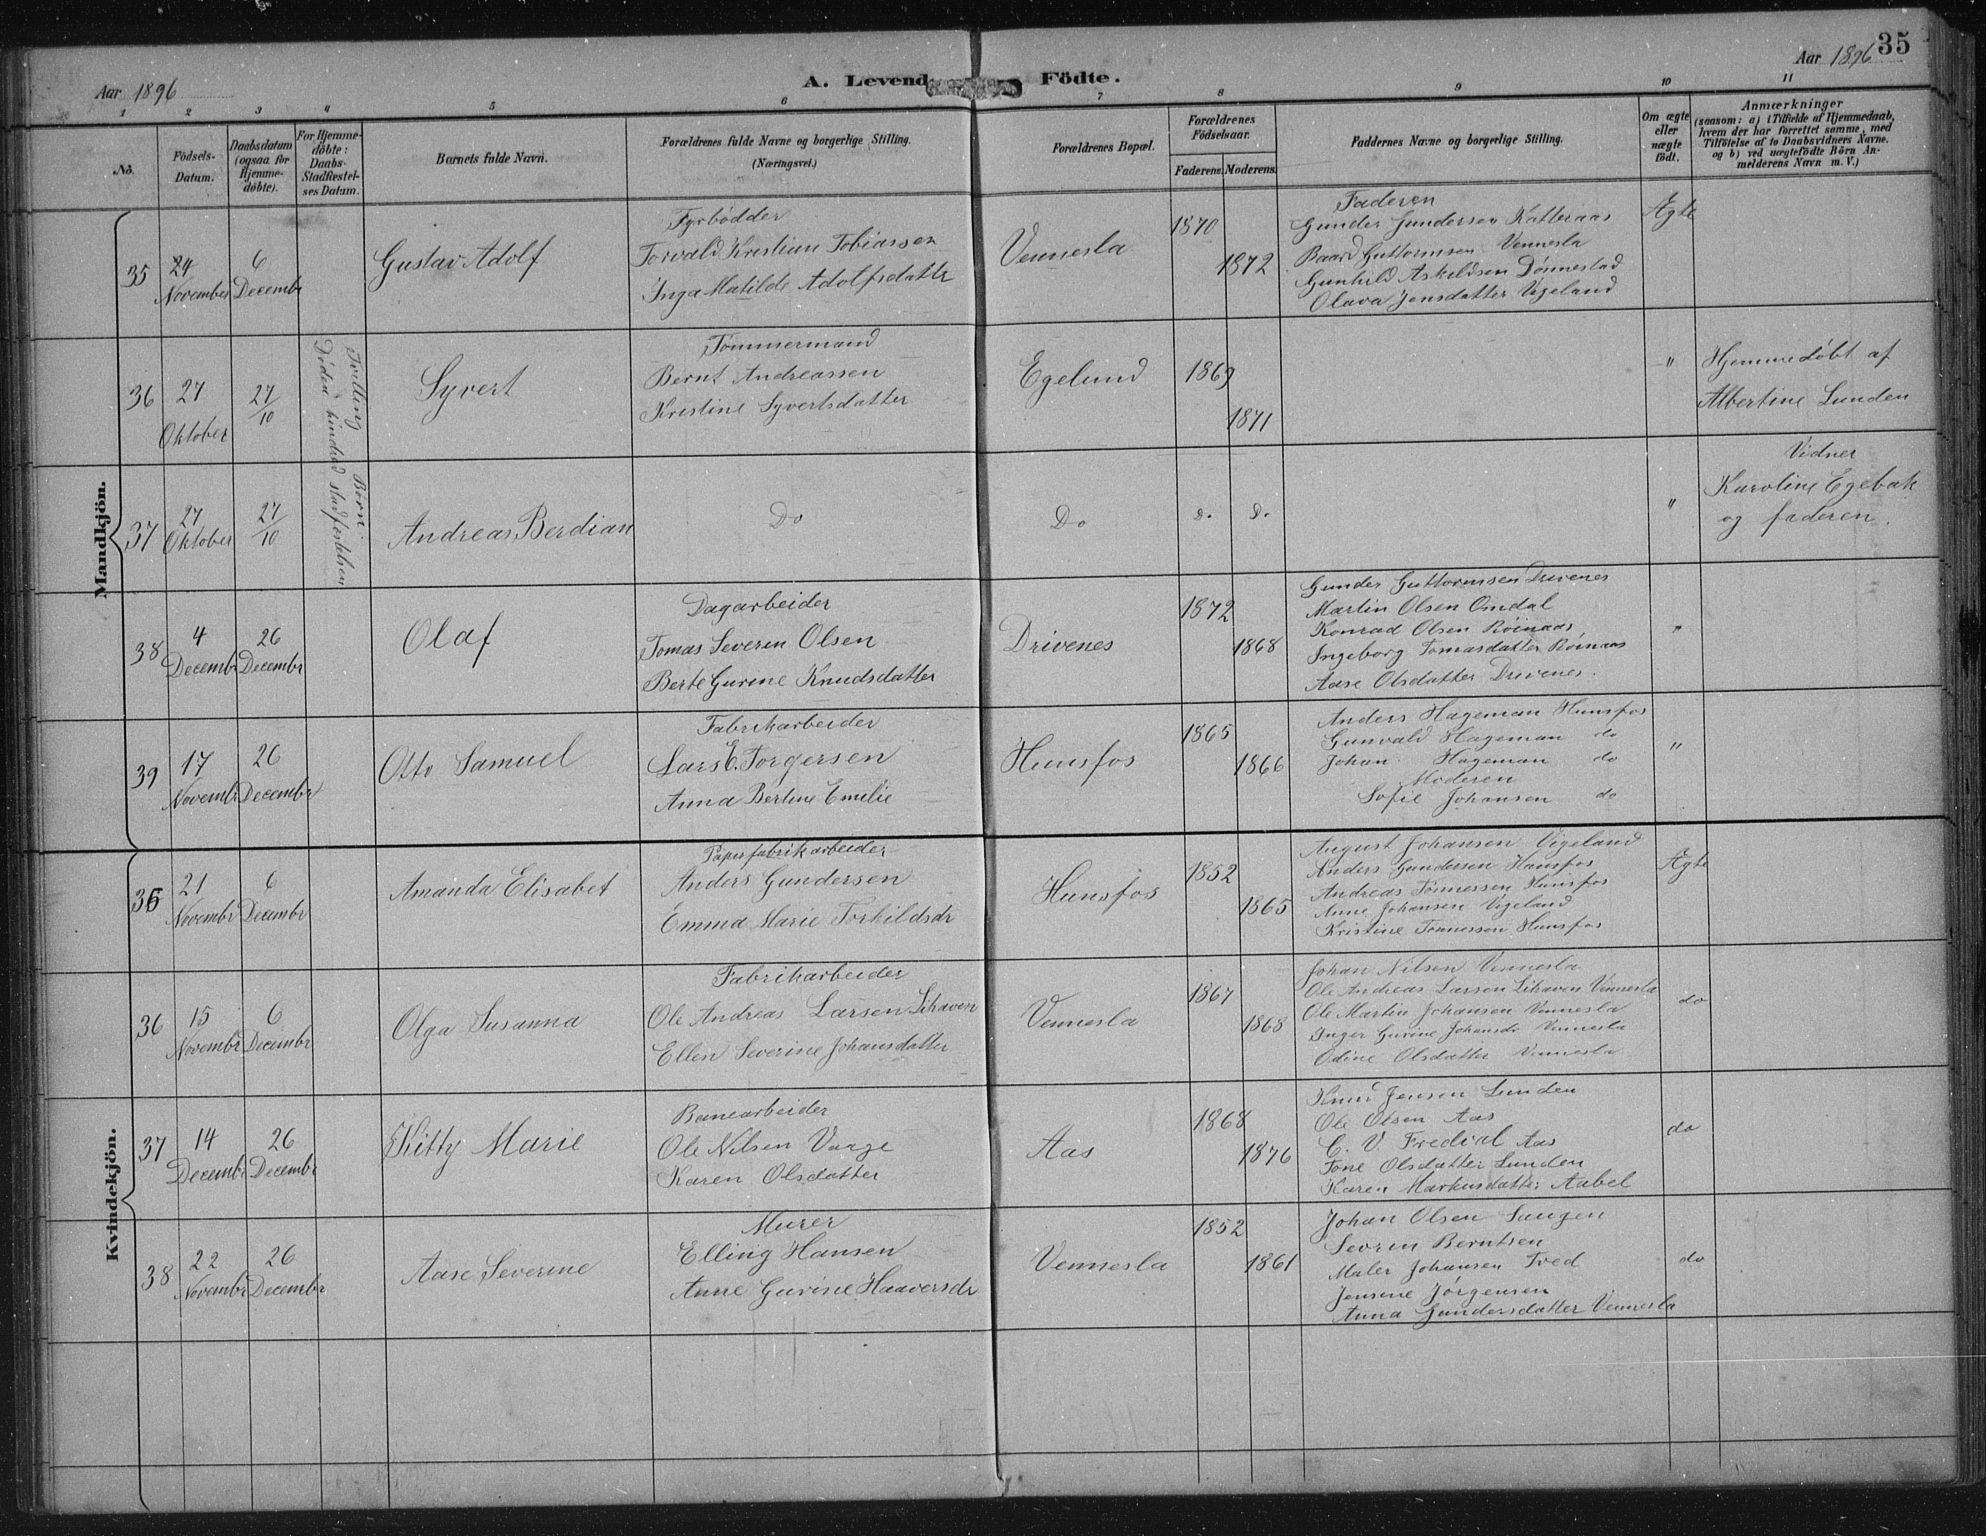 35
Aar 1896
A. Levende Födte.
Aar 1896
1 2 3 4 5 6 7 8 9 10 11
No.
Födsels-Datum.
Daabsdatum (ogsaa for Hjemmedöbte).
For Hjemmedöbte: Daabs-Stadfæstelses Datum.
Barnets fulde Navn.
Forældrenes fulde Navne og borgerlige Stilling.
(Næringsvei.)
Forældrenes Bopæl.
Forældrenes Födselsaar.
Faderens. Moderens.
Faddernes Navne og borgerlige Stilling.
Om ægte eller uægte födt.
Anmærkninger
(saasom: a) i Tilfælde af Hjemmedaab, hvem der har forrettet samme, med Tilföielse af to Daabsvidners Navne. og b) ved uægtefödte Börn Anmelderens Navn m. V.)
Mandkjön.
35
24 November
6 Decembr
Gustav Adolf
Fyrbødder
Torvald Kristian Tobiassen
Inga Matilde Adolfsdattr
Vennesla
1870
1872
Faderen
Gunder Gundersen Katteraas
Baard Guttormsen Vennesla
Gunhild Askildsen Dønnestad
Olava Jensdatter Vigeland
Ægte
36
27 Oktober
27/10
Tvilling Børn
Døden hindred stadfestelsen
Syvert
Tømmermand
Bernt Andreassen
Kristine Syvertsdatter
Egelund
1869
1871
"
Hjemmedøbt af
Albertine Lunden
37
27 Oktober
27/10
Andreas Berdian
Do
Do
Do
Do
"
Vidner
Karoline Egebak
og faderen.
38
4 Decembr
26 Decembr
Olaf
Dagarbeider
Tomas Severin Olsen
Berte Gurine Knudsdatter
Drivenes
1872
1868
Gunder Guttormsen Drivenes
Martin Olsen Omdal
Konrad Olsen Røinaas
Ingeborg Tomasdatter Røinaas
Aase Olsdatter Drivenes.
"
39
17 Novembr
26 Decembr
Otto Samuel
Fabrikarbeider
Lars E. Torgersen
Anna Bertine Emilie
Hunsfos
1865
1866
Anders Hageman Hunsfos
Gunvald Hageman do
Johan Hageman do
Moderen
Sofie Johansen do
"
Kvindekjön.
35
21 Novembr
6 Decembr
Amanda Elisabet
Papirfabrikarbeider
Anders Gundersen
Emma Marie Torkildsdr
Hunsfos
1852
1865
August Johansen Vigeland
Anders Gundersen Hunsfos
Andreas Tønnessen Hunsfos
Anne Johansen Vigeland
Kristine Tønnessen Hunsfos
Ægte
36
15 Novembr
6 Decembr
Olga Susanna
Fabrikarbeider
Ole Andreas Larsen Lihaven
Ellen Severine Johansdatter
Vennesla
1867
1868
Johan Nilsen Vennesla
Ole Andreas Larsen Lihaven Vennesla
Ole Martin Johansen Vennesla
Inger Gurine Johansdr Vennesla
Odine Olsdatter Vennesla
do
37
14 Decembr
26 Decembr
Kitty Marie
Banearbeider
Ole Nilsen Vaage
Karen Olsdatter
Aas
1868
1876
Knud Jensen Lunden
Ole Olsen Aas
C. V. Aas
Tone Olsdatter Lunden
Karen Markusdatter Aabel
do
38
22 Novembr
26 Decembr
Aase Severine
Murer
Elling Hansen
Anne Gurine Haaversdr
Vennesla
1852
1861
Johan Olsen Saugen
Sevrin Berntsen
Maler Johansen Tved
Jensine Jørgensen
Anna Gundersdatter Vennesla
do